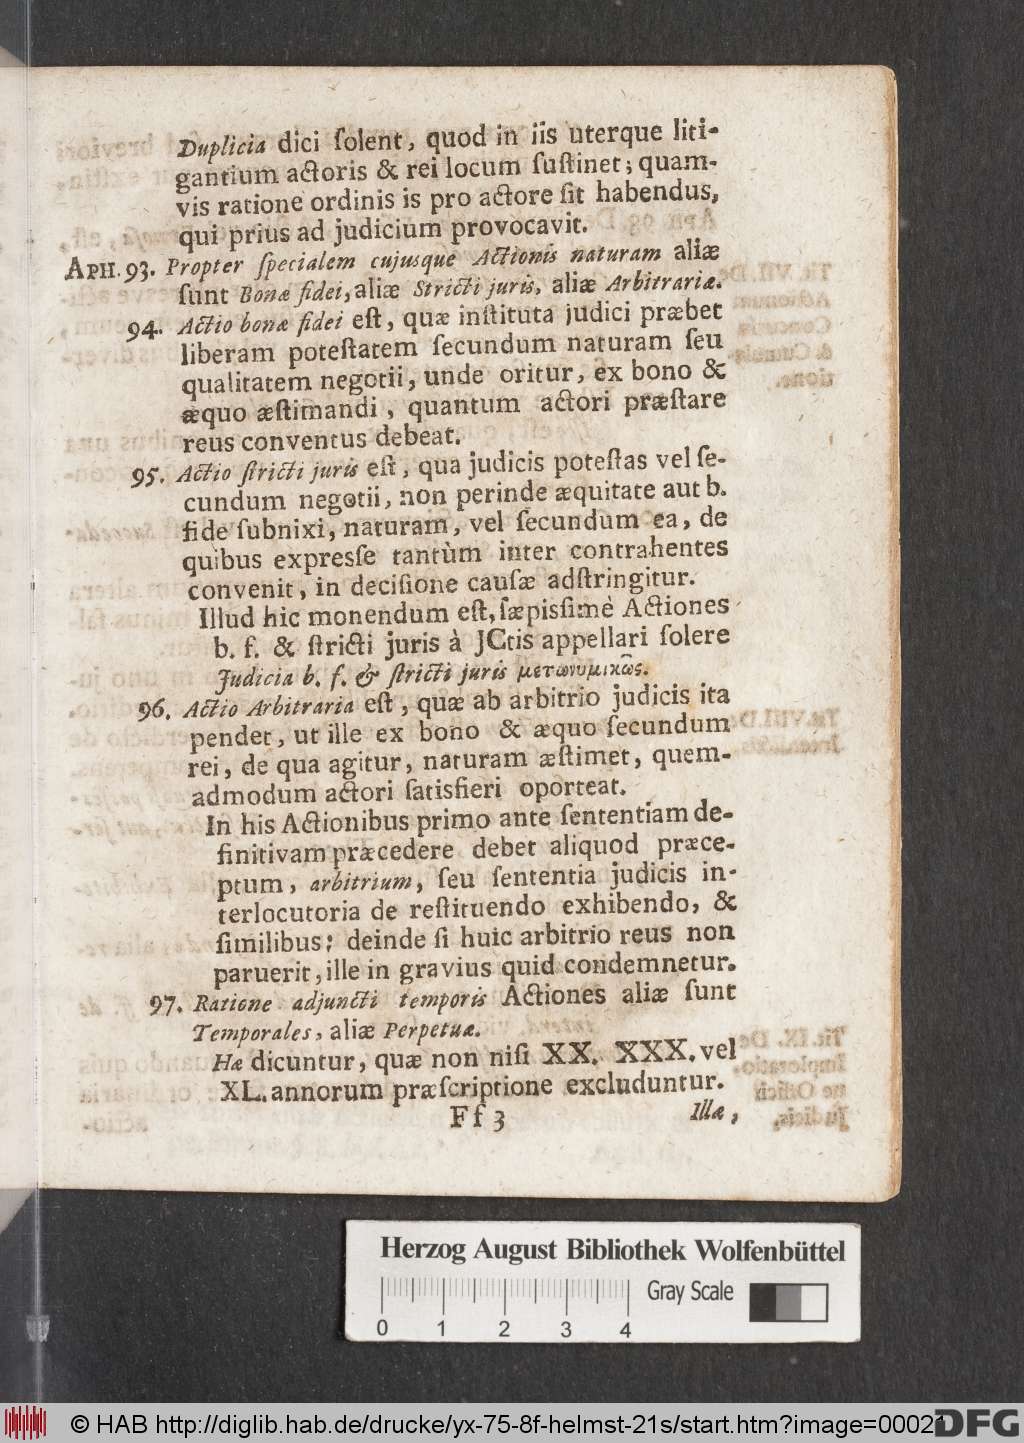 Duplicia dici ſolent, quod in iis uterque liti-
gantium actoris & rei locum ſuſtinet; quam-
vis ratione ordinis is pro actore ſit habendus,
qui prius ad judicium provocavit.
APH. 93. Propter ſpecialem cujusque Actionis naturam aliæ
ſunt Bonæ fidei, aliæ Stricti juris, aliæ Arbitrariæ.
94. Actio bonæ fidei eſt, quæ inſtituta judici præbet
liberam poteſtatem ſecundum naturam ſeu
qualitatem negotii, unde oritur, ex bono &
æquo æſtimandi, quantum actori præſtare
reus conventus debeat.
95. Actio ſtricti juris eſt, qua judicis poteſtas vel ſe-
cundum negotii, non perinde æquitate aut b.
fide ſubnixi, naturam, vel ſecundum ea, de
quibus expreſſe tantùm inter contrahentes
convenit, in deciſione cauſæ adſtringitur.
Illud hic monendum eſt, ſæpiſſimè Actiones
b. f. & ſtricti juris à JCtis appellari ſolere
Judicia b. f. & ſtricti juris μετωνυμικῶς.
96. Actio Arbitraria eſt, quæ ab arbitrio judicis ita
pendet, ut ille ex bono & æquo ſecundum
rei, de qua agitur, naturam æſtimet, quem-
admodum actori ſatisfieri oporteat.
In his Actionibus primo ante ſententiam de-
finitivam præcedere debet aliquod præce-
ptum, arbitrium, ſeu ſententia judicis in-
terlocutoria de reſtituendo exhibendo, &
ſimilibus; deinde ſi huic arbitrio reus non
paruerit, ille in gravius quid condemnetur.
97. Ratione adjuncti temporis Actiones aliæ ſunt
Temporales, aliæ Perpetuæ.
Hæ dicuntur, quæ non niſi XX. XXX. vel
XL. annorum præſcriptione excluduntur.
Ff 3 Illæ,
Herzog August Bibliothek Wolfenbüttel
Gray Scale
0 1 2 3 4
© HAB http://diglib.hab.de/drucke/yx-75-8f-helmst-21s/start.htm?image=00021
DFG